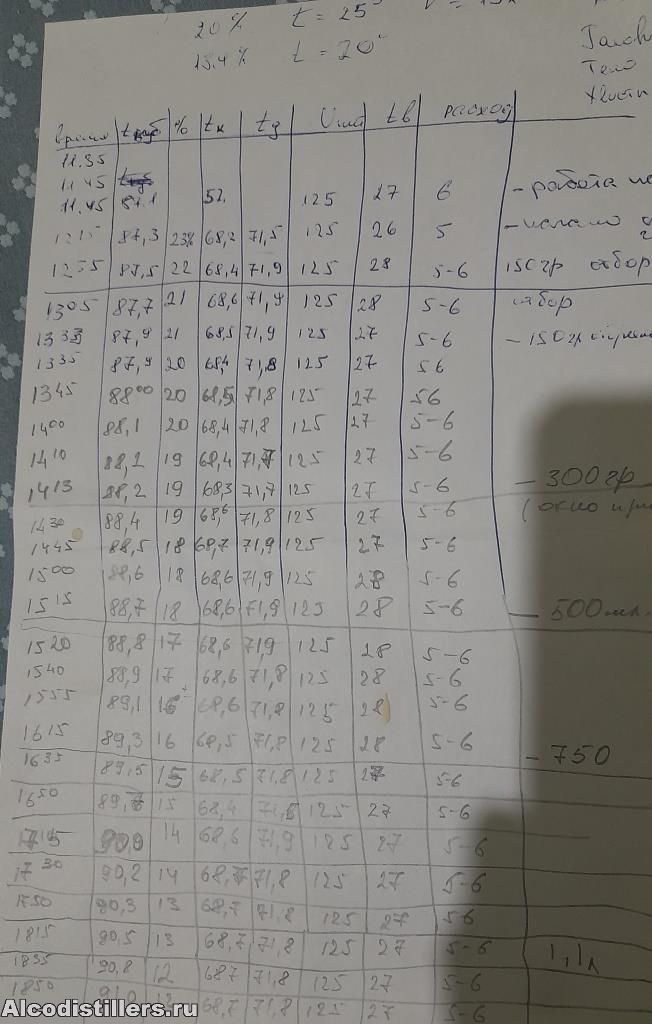 20% t = 25°
13.4% t = 20°
Тело
время tкуб % tк tд Uтэн tв расход
11.35
11.45
11.45 87.1 52. 125 27 6 - работа
1215 87,3 23% 68,2 71,5 125 26 5 - начало
1255 87,5 22 68,4 71,9 125 28 5-6 150гр отбор
1305 87,7 21 68,6 71,9 125 28 5-6 отбор
1333 87,9 21 68,5 71,9 125 27 5-6 - 150гр
1335 87,9 20 68,4 71,8 125 27 56
1345 8800 20 68,5 71,8 125 27 56
1400 88,1 20 68,4 71,8 125 27 5-6
1410 88,2 19 68,4 71,7 125 27 5-6
1413 88,2 19 68,3 71,7 125 27 5-6 - 300гр
1430 88,4 19 68,6 71,8 125 27 5-6 (окно
1445 88,5 18 68,7 71,9 125 27 5-6
1500 88,6 18 68,6 71,9 125 28 5-6
1515 88,7 18 68,6 71,9 125 28 5-6 - 500мл.
1520 88,8 17 68,6 719 125 28 5-6
1540 88,9 17 68,6 71,8 125 28 5-6
1555 89,1 16 68,6 71,8 125 28 5-6
1615 89,3 16 68,5 71,8 125 28 5-6 - 750
1635 89,5 15 68,5 71,8 125 27 5-6
1650 15 68,4 125 27 5-6
14 68,6 71,9 125 27 5-6
1730 90,2 14 68,7 71,8 125 27 5-6
1750 90,3 13 68,7 71,8 125 27 56
1815 90,5 13 68,7 71,8 125 27 5-6 1,1л
1835 90,8 12 687 71,8 125 27 5-6
1850 68,7 71,8 125 27 5-6
Alcodistillers.ru